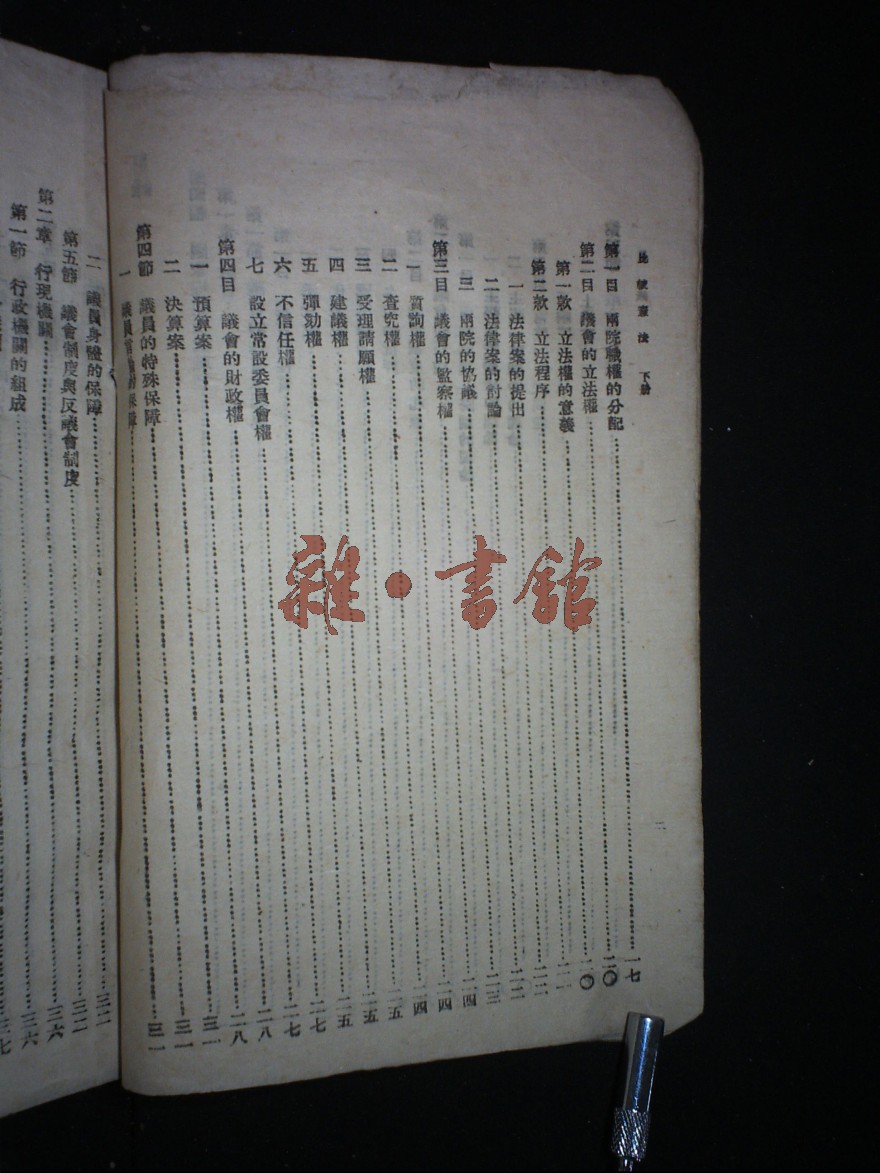 比較憲法 下冊 二
第一目 兩院職權的分配……一七
第二目 議會的立法權……二〇
第一款 立法權的意義……二〇
第二款 立法程序……二一
一 法律案的提出……二二
二 法律案的討論……二二
三 兩院的協議……二三
第三目 議會的監察權……二四
一 質詢權……二四
二 查究權……二四
三 受理請願權……二五
四 建議權……二五
五 彈劾權……二五
六 不信任權……二七
七 設立常設委員會權……二七
第四目 議會的財政權……二八
一 預算案……二八
二 決算案……三一
第四節 議員的特殊保障……三一
一 議員言論的保障……三一
二 議員身體的保障……三二
第五節 議會制度與反議會制度……三二
第二章 行現機關……三六
第一節 行政機關的組成……三六
雜·書館